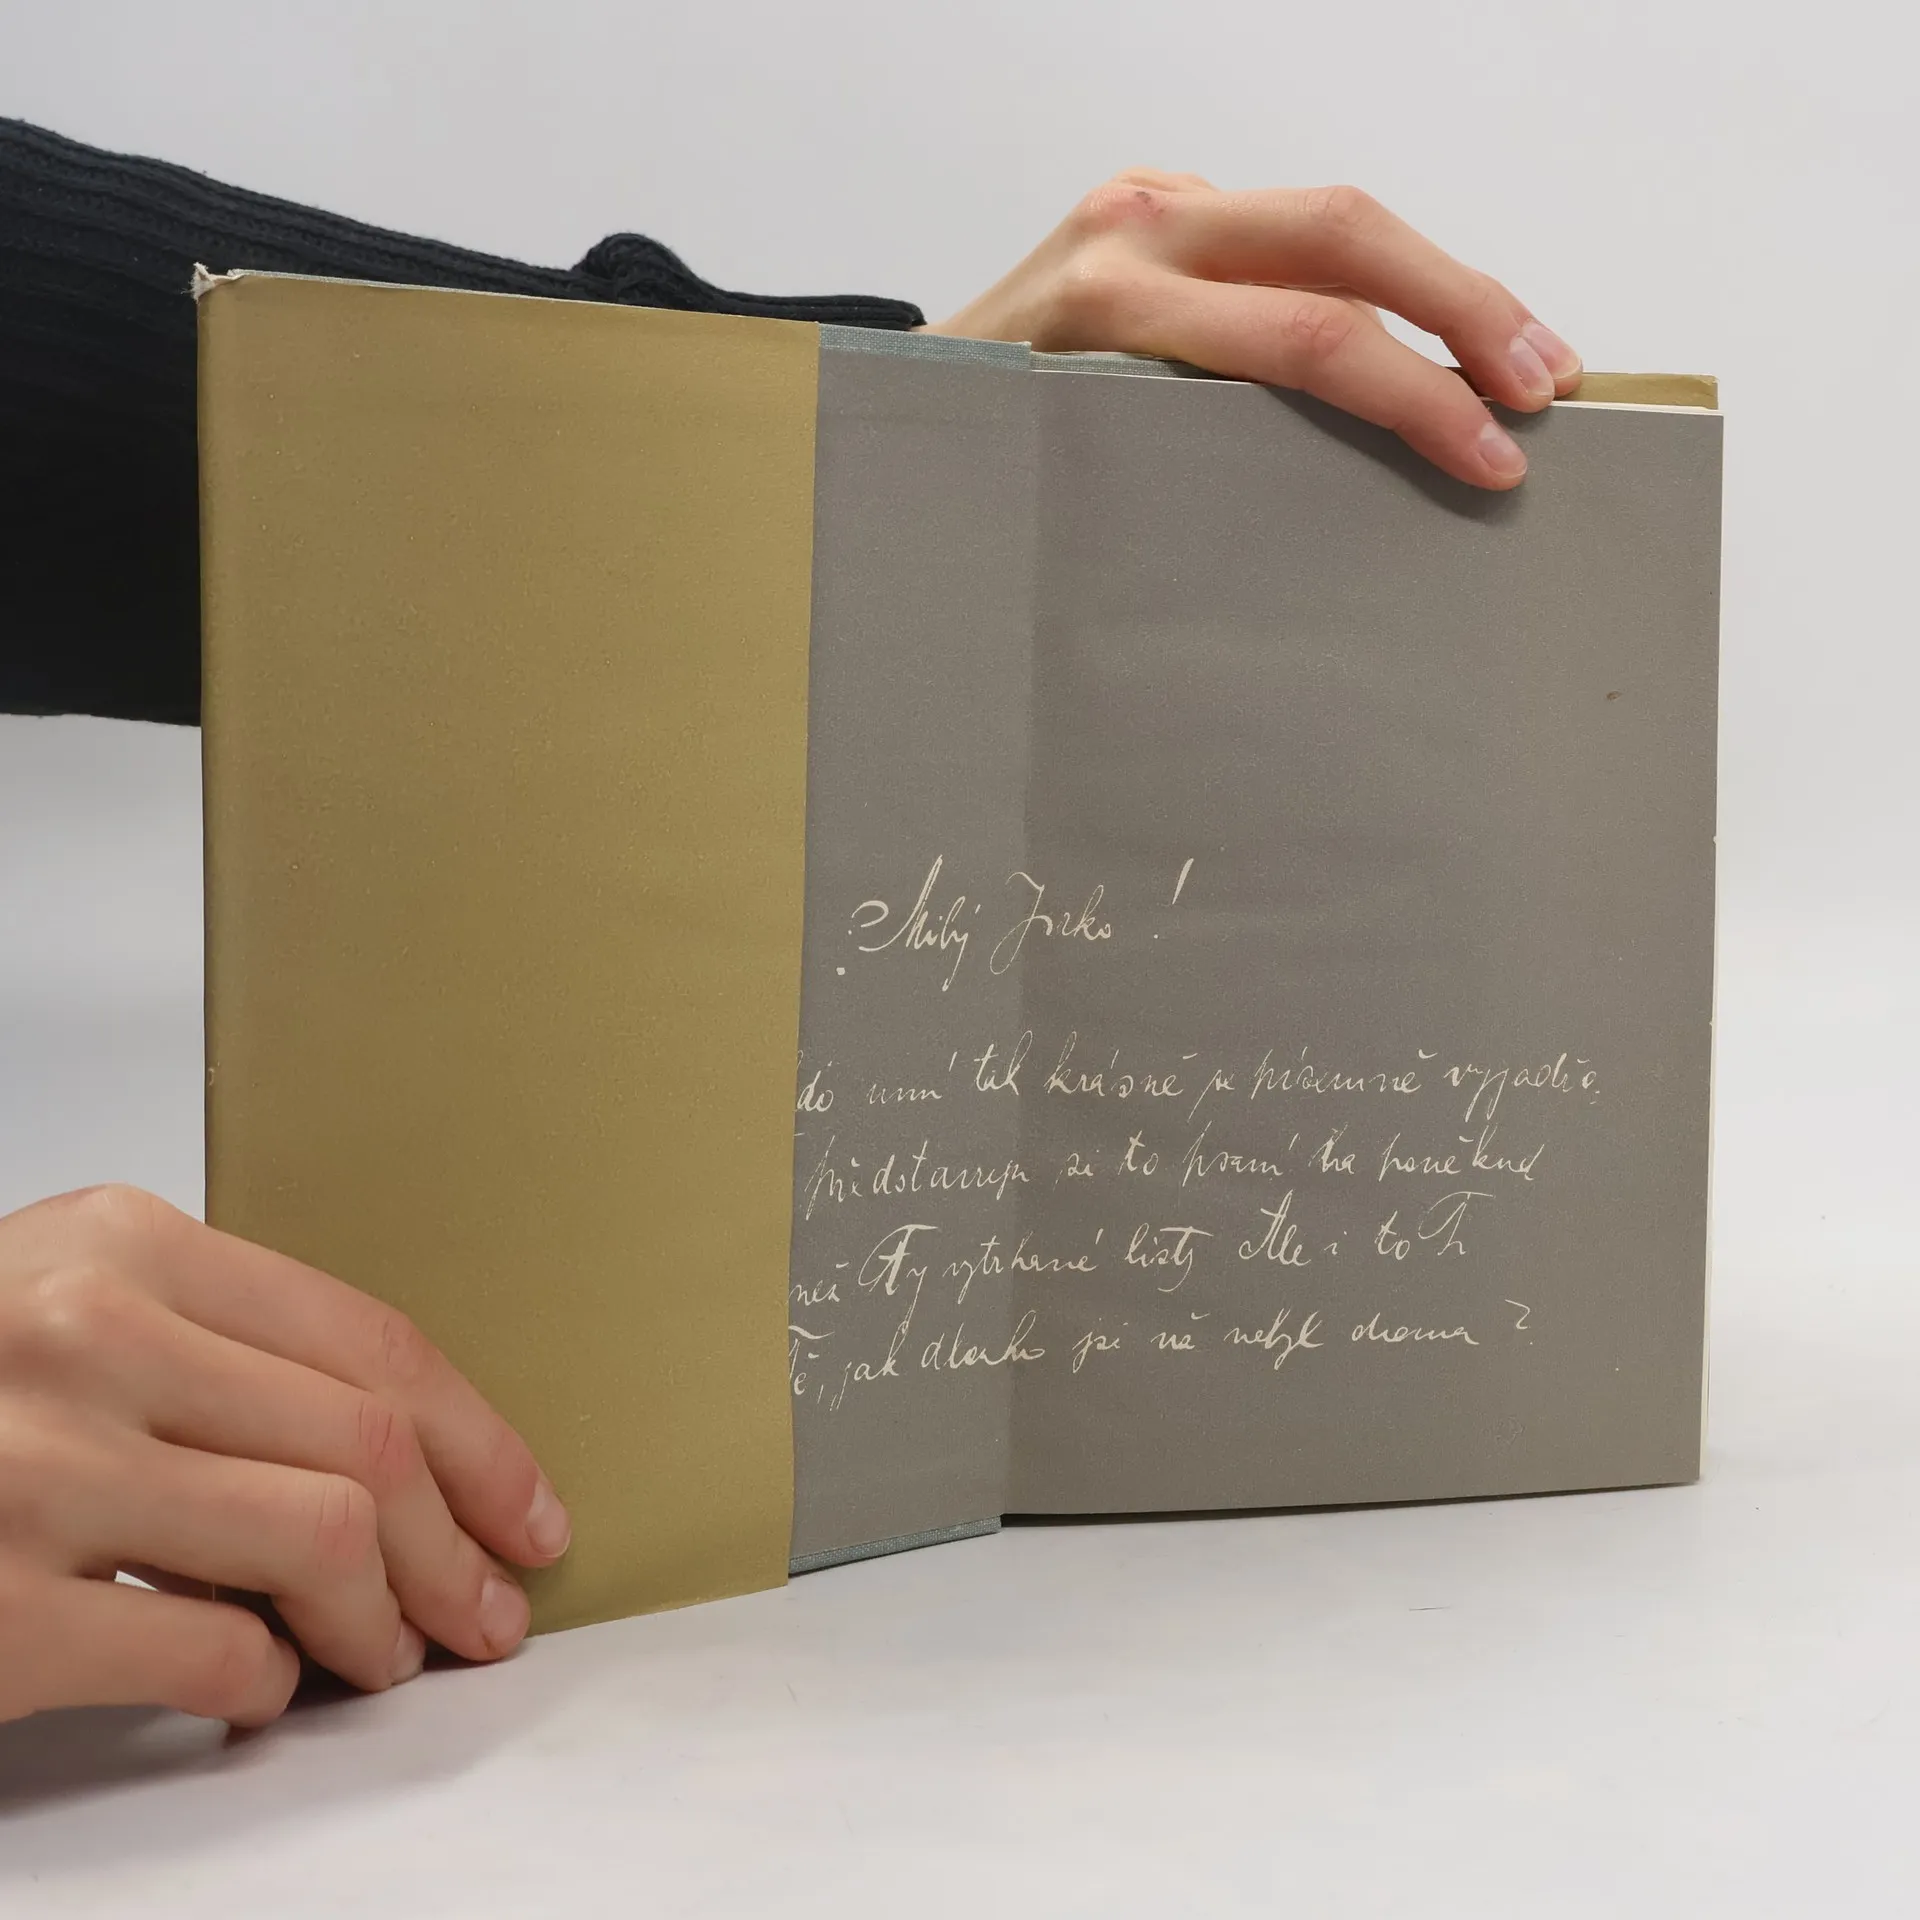 Milý Jurko!
do umí tak krásně se písemně vyjadřo
představuju si to psaní na poněkud
než Ty vytrhané listy Ale i to Ti
Tě, jak dlouho jsi už nebyl doma?